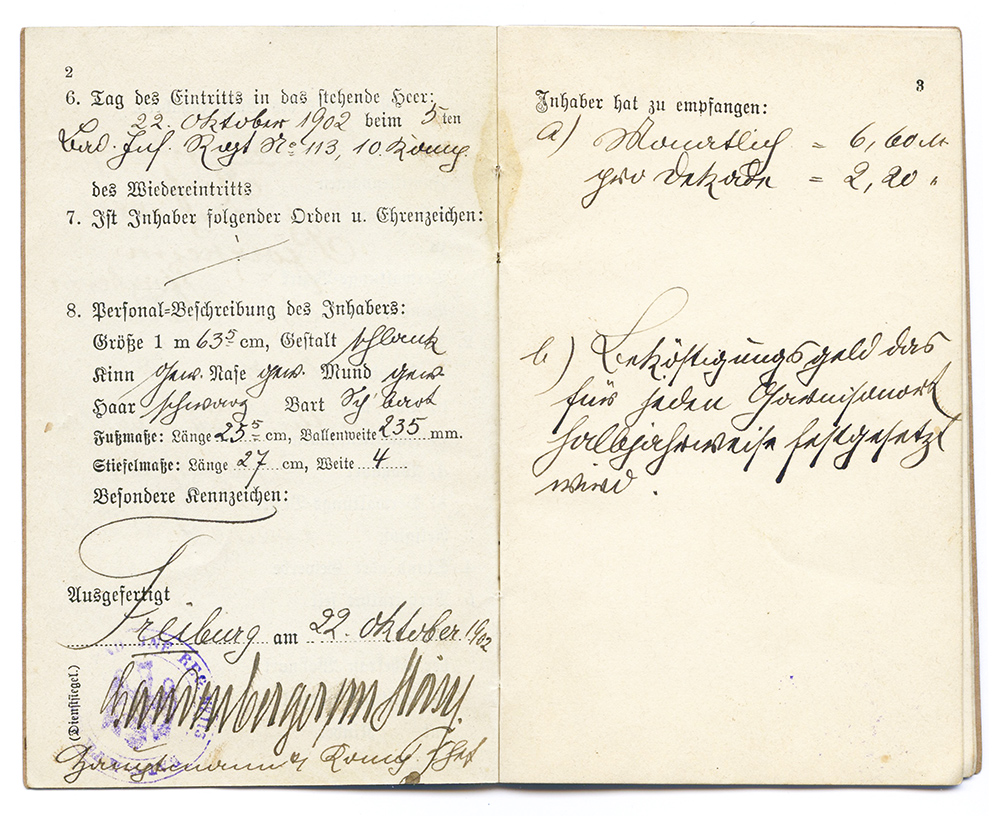 2
6. Tag des Eintritts in das stehende Heer:
22. Oktober 1902 beim 5ten
Bad. Inf. Regt No 113, 10. Komp.
des Wiedereintritts
7. Ist Inhaber folgender Orden u. Ehrenzeichen:
8. Personal-Beschreibung des Inhabers:
Größe 1 m 63⁵ cm, Gestalt schlank
Kinn gew. Nase gew. Mund gew
Haar schwarz Bart Sch'bart
Fußmaße: Länge 25⁵ cm, Ballenweite 235 mm.
Stiefelmaße: Länge 27 cm, Weite 4
Besondere Kennzeichen:
Ausgefertigt
Freiburg am 22. Oktober 1902
(Dienstsiegel.)
Hauptmann u Komp Chef
3
Inhaber hat zu empfangen:
a) Monatlich = 6,60 M
pro Dekade = 2,20 "
b) Beköstigungsgeld das
für jeden Garnisonort
halbjahrweise festgesetzt
wird.